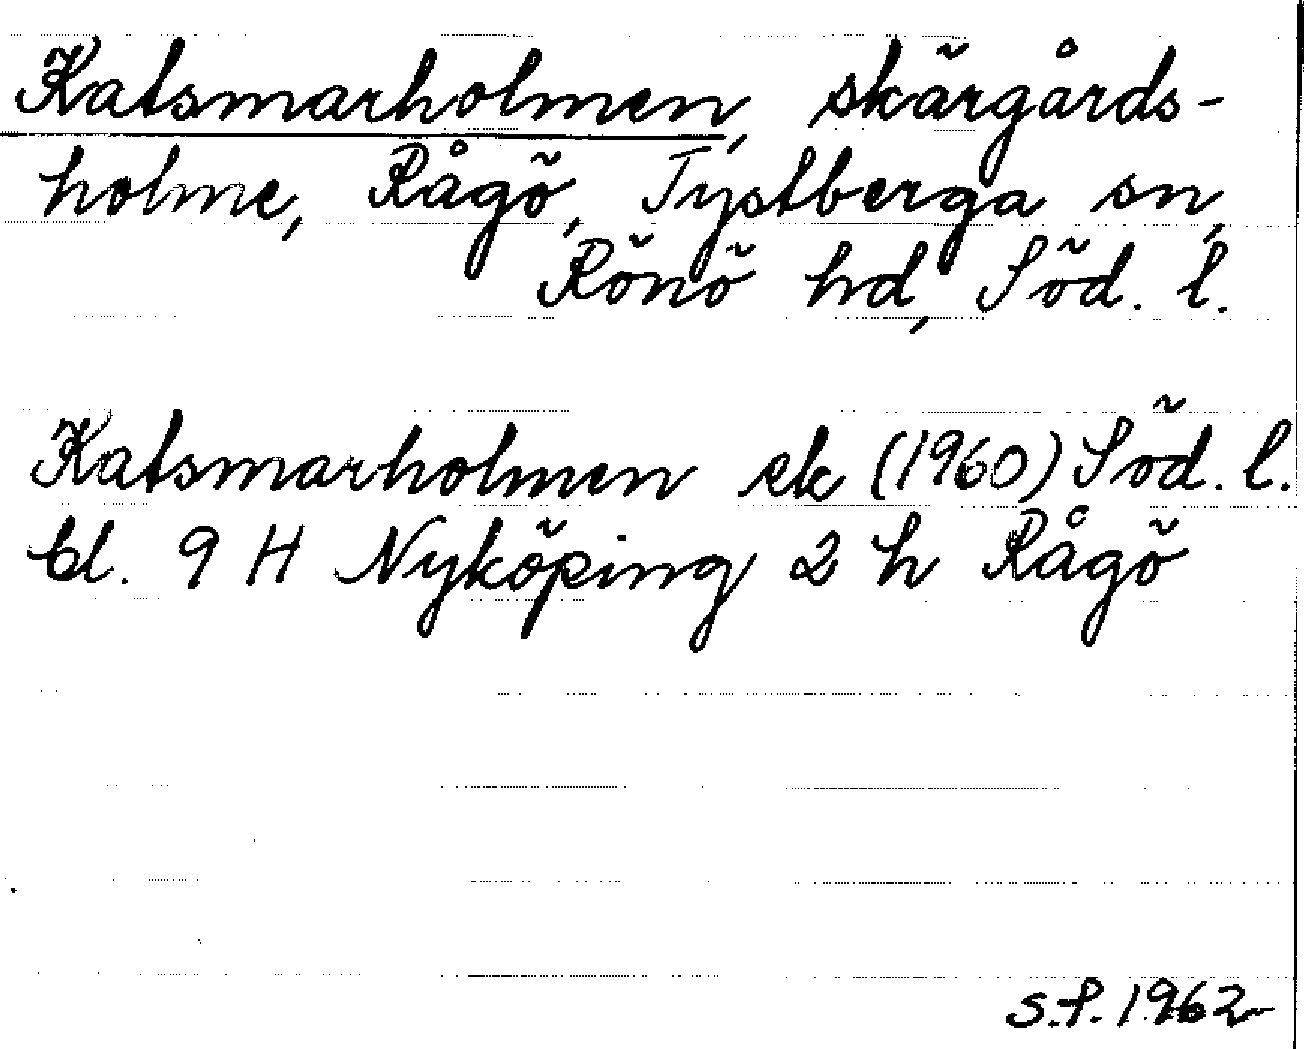 Katsmarholmen, skärgårds-
holme, Rågö, Tystberga sn,
Rönö hd, Söd. l.
Katsmarholmen ek (1960) Söd. l.
bl. 9 H Nyköping 2 h Rågö
S.P. 1962